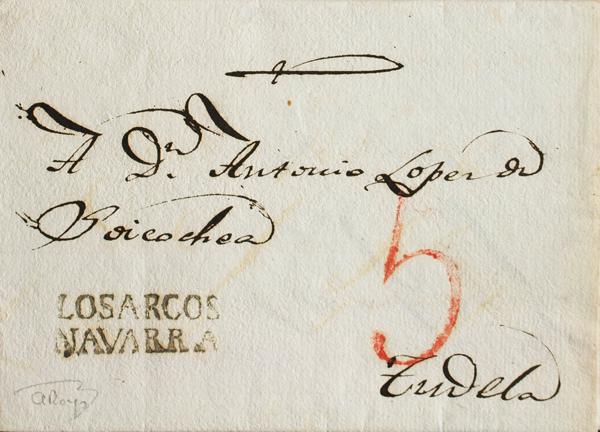 A Dn. Antonio Loper de
Goicochea
5
LOSARCOS
NAVARRA
Tudela